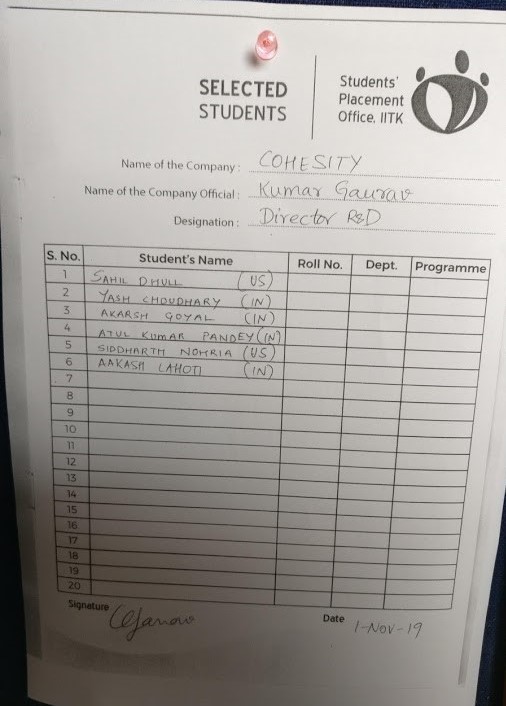 SELECTED
STUDENTS
Students'
Placement
Office, IITK
Name of the Company: COHESITY
Name of the Company Official: Kumar Gaurav
Designation: Director R&D
S. No. Student's Name Roll No. Dept. Programme
1 SAHIL DHULL (US)
2 YASH CHOUDHARY (IN)
3 AKARSH GOYAL (IN)
4 ATUL KUMAR PANDEY (IN)
5 SIDDHARTH NOHRIA (US)
6 AAKASH LAHOTI (IN)
7
8
9
10
11
12
13
14
15
16
17
18
19
20
Signature Date 1-Nov-19